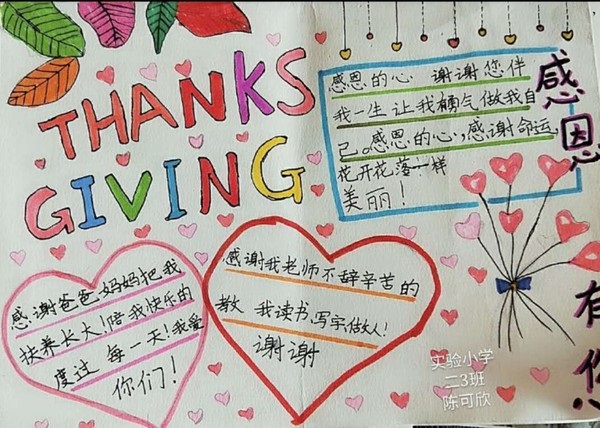 THANKS
GIVING
感恩的心 谢谢您伴
我一生让我有勇气做我自
己。感恩的心，感谢命运，
花开花落一样
美丽！
感恩
有您
感谢爸爸、妈妈把我
扶养长大！陪我快乐的
度过每一天！我爱
你们！
感谢我老师不辞辛苦的
教 我读书、写字、做人！
谢谢
实验小学
二3班
陈可欣